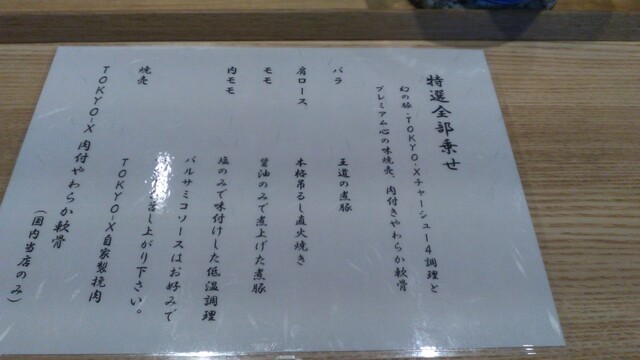 特選全部乗せ
幻の豚・TOKYO-Xチャーシュー4調理と
プレミアム心の味焼売、肉付きやわらか軟骨
バラ 王道の煮豚
肩ロース 本格吊るし直火焼き
モモ 醤油のみで煮上げた煮豚
内モモ 塩のみで味付けした低温調理
バルサミコソースはお好みで
し上がり下さい。
焼売 TOKYO-X自家製挽肉
TOKYO-X 肉付やわらか軟骨
(国内当店のみ)